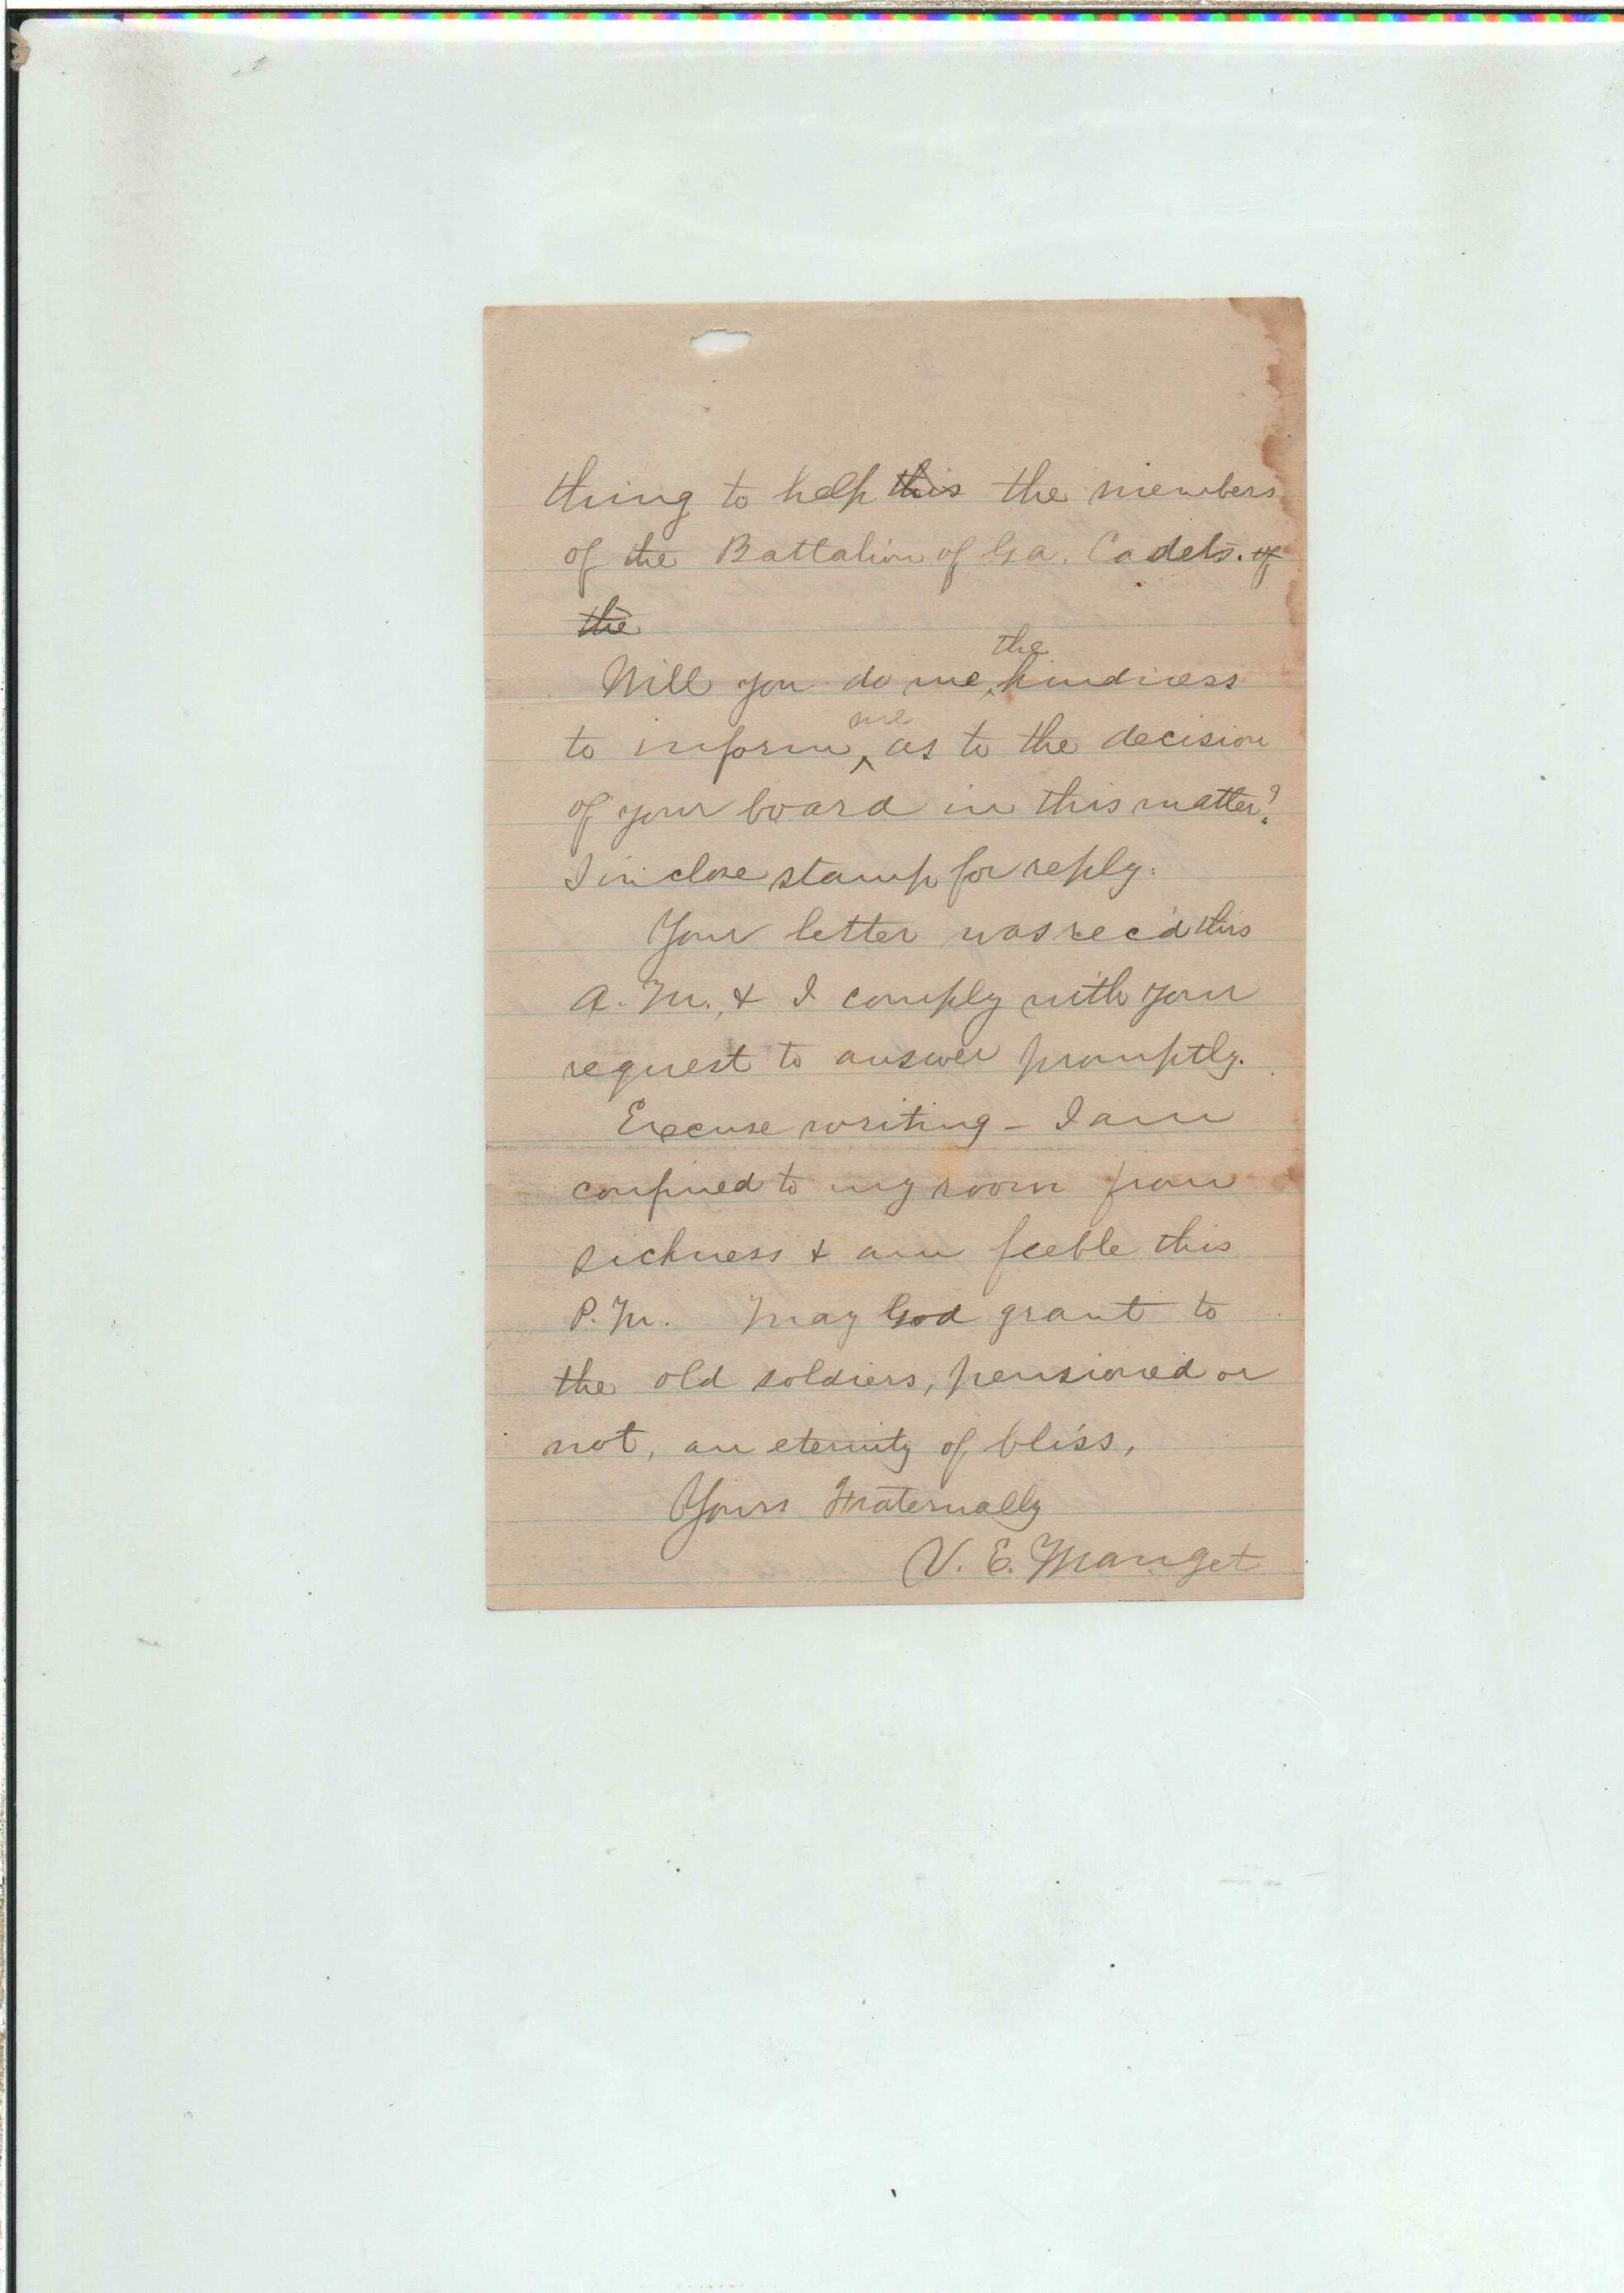 thing to help this the members
of the Battalion of Ga. Cadets. of
the
Will you do me the kindness
to inform me as to the decision
of your board in this matter?
I inclose stamp for reply.
Your letter was rec'd this
A. M., & I comply with your
request to answer promptly.
Excuse writing - I am
confined to my room from
sickness & am feeble this
P. M. May God grant to
the old soldiers, pensioned or
not, an eternity of bliss,
Yours Fraternally
V. E. Manget